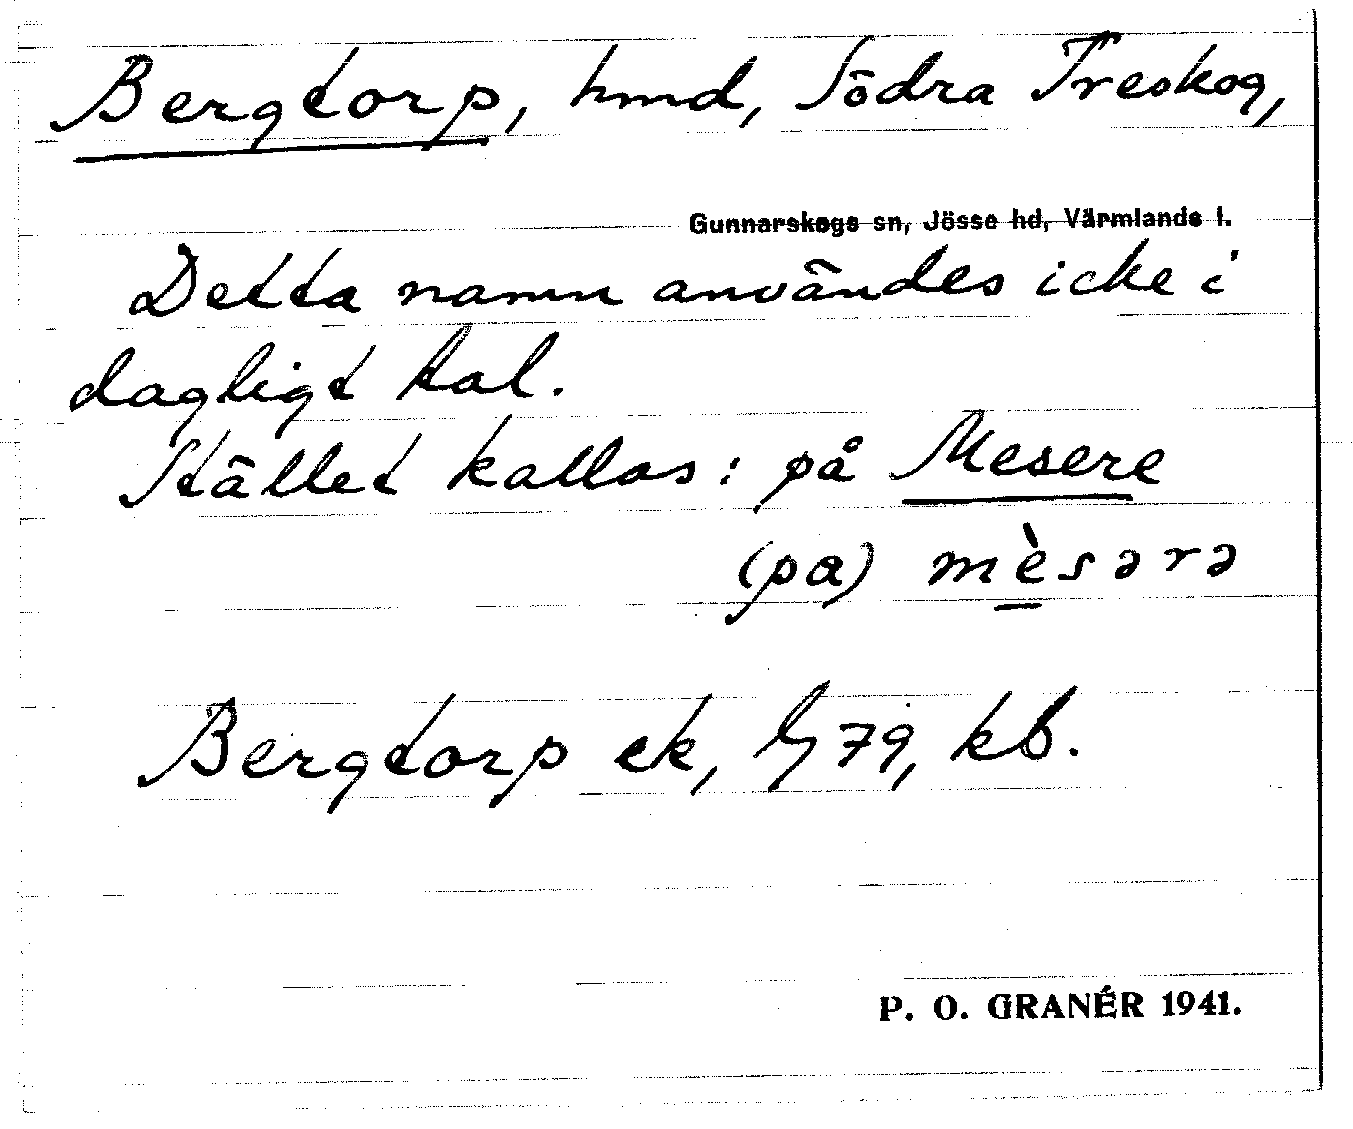 Bergtorp, hmd, Södra Treskog,
Gunnarskogs sn, Jösse hd, Värmlands l.
Detta namn användes icke i
dagligt tal.
Stället kallas: på Mesere
(pa) mèsərə
Bergtorp ek, G 79, kb.
P. O. GRANÉR 1941.